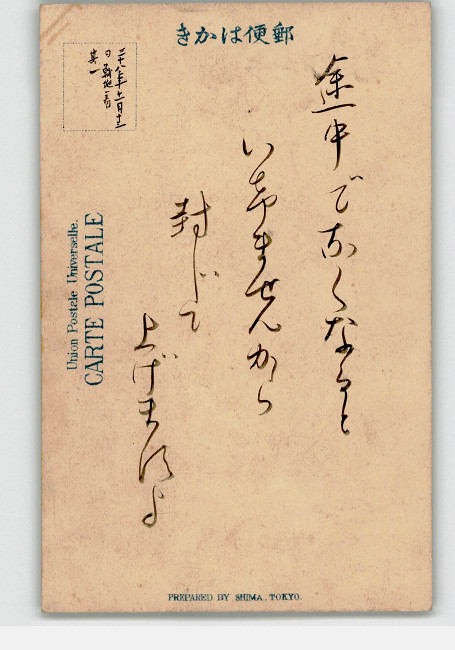 きかは便郵
途中でなくなると
いけませんから
封じて
上げますよ
三十八年十二月十二
日戦地着
其一
Union Postale Universelle.
CARTE POSTALE
PREPARED BY SHIMA, TOKYO.